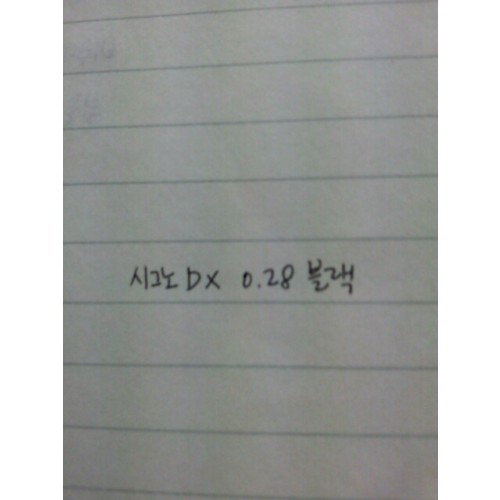 시그노 DX 0.28 블랙